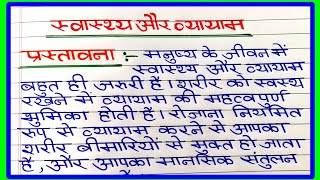 स्वास्थ्य और व्यायाम
प्रस्तावना :- मनुष्य के जीवन में
स्वास्थ्य और व्यायाम
बहुत ही जरुरी हैं। शरीर को स्वस्थ
रखने में व्यायाम की महत्वपूर्ण
भूमिका होती हैं। रोजाना नियमित
रुप से व्यायाम करने से आपका
शरीर बीमारियों से मुक्त हो जाता
है, और आपका मानसिक संतुलन